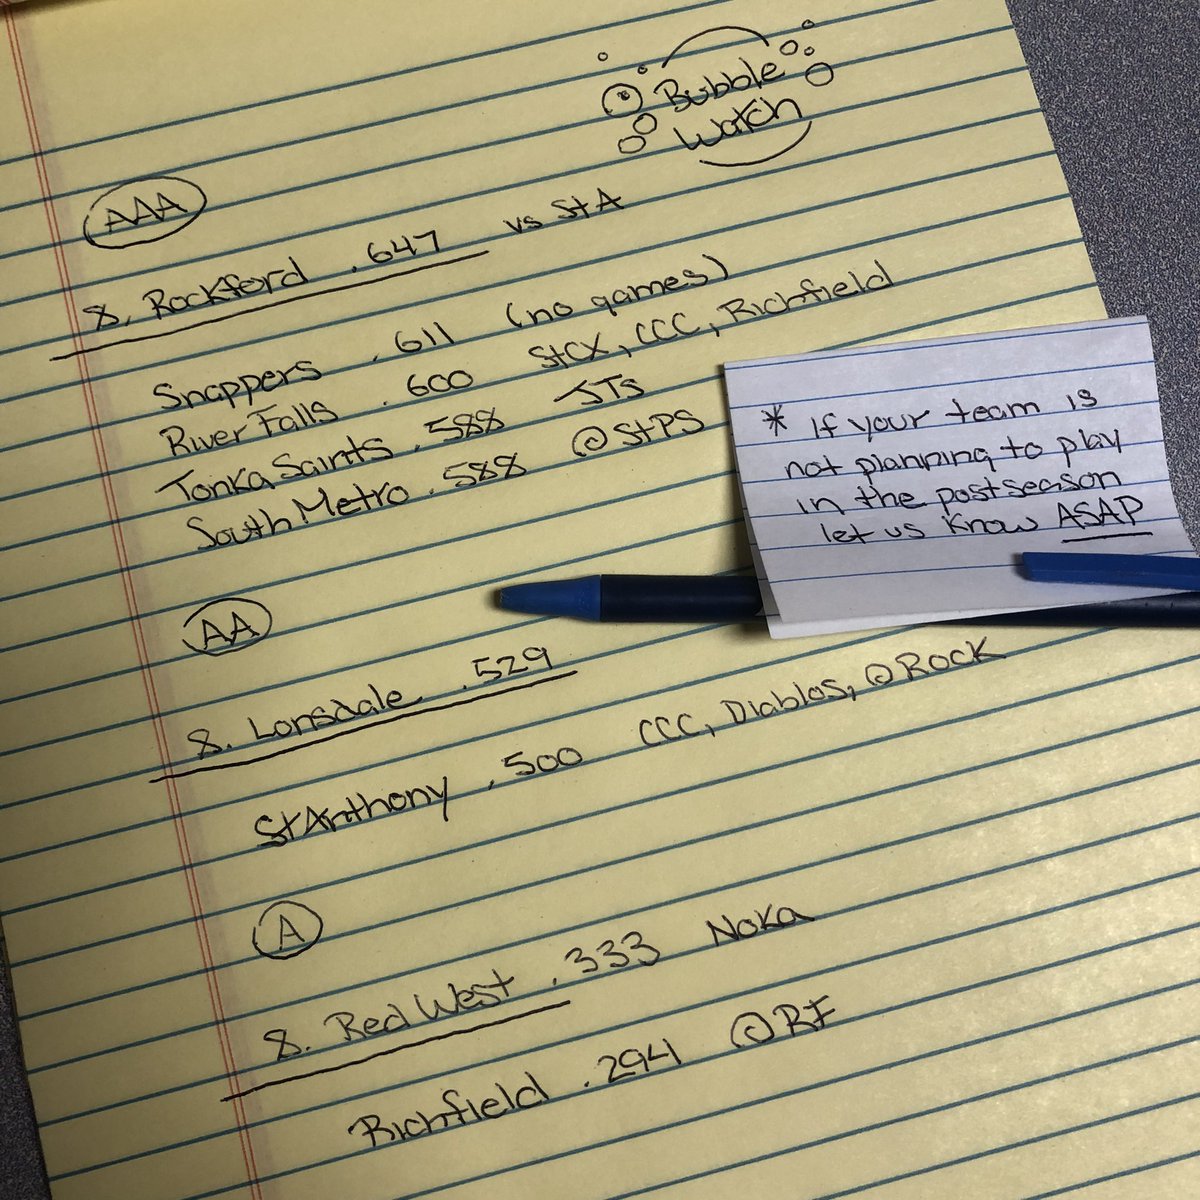 Bubble
Watch
AAA
8. Rockford .647 vs StA
Snappers .611 (no games)
River Falls .600 StCX, CCC, Richfield
Tonka Saints .588 JTs
South Metro .588 @StPS
* If your team is
not planning to play
in the postseason
let us know ASAP
AA
8. Lonsdale .529
St Anthony .500 CCC, Diablos, @Rock
A
8. Red West .333 Noka
Richfield .294 @RF